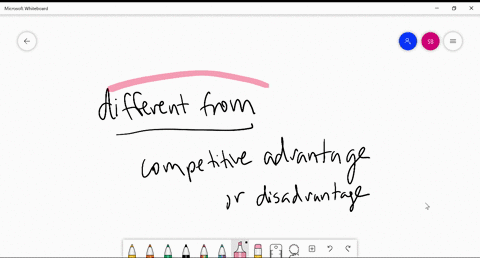 Microsoft Whiteboard
SB
different from
competitive advantage
or disadvantage